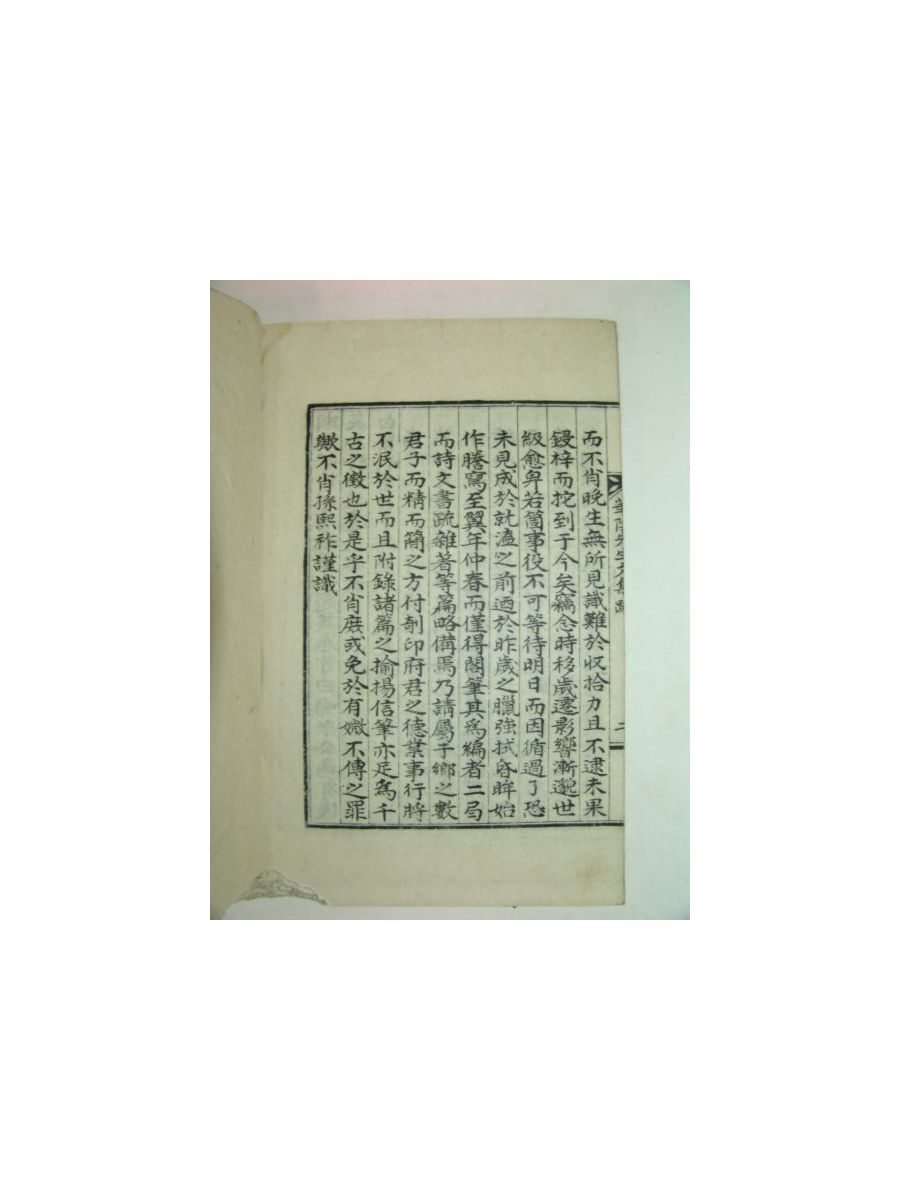 而不肖晩生無所見識難於収拾力且不逮未果
鋟梓而拕到于今矣竊念時移歲遷影響漸邈世
級愈卑若箇事役不可等待明日而因循過了恐
未見成於就溘之前迺於昨歲之臘強拭昏眸始
作謄寫至翼年仲春而僅得閣筆其爲編者二局
而詩文書疏雜著等篇略備焉乃請屬于鄉之數
君子而精而簡之方付剞印府君之德業事行將
不泯於世而且附錄諸篇之揄揚信筆亦足爲千
古之徵也於是乎不肖庶或免於有媺不傳之罪
歟不肖孫熙祚謹識
先生文集
二